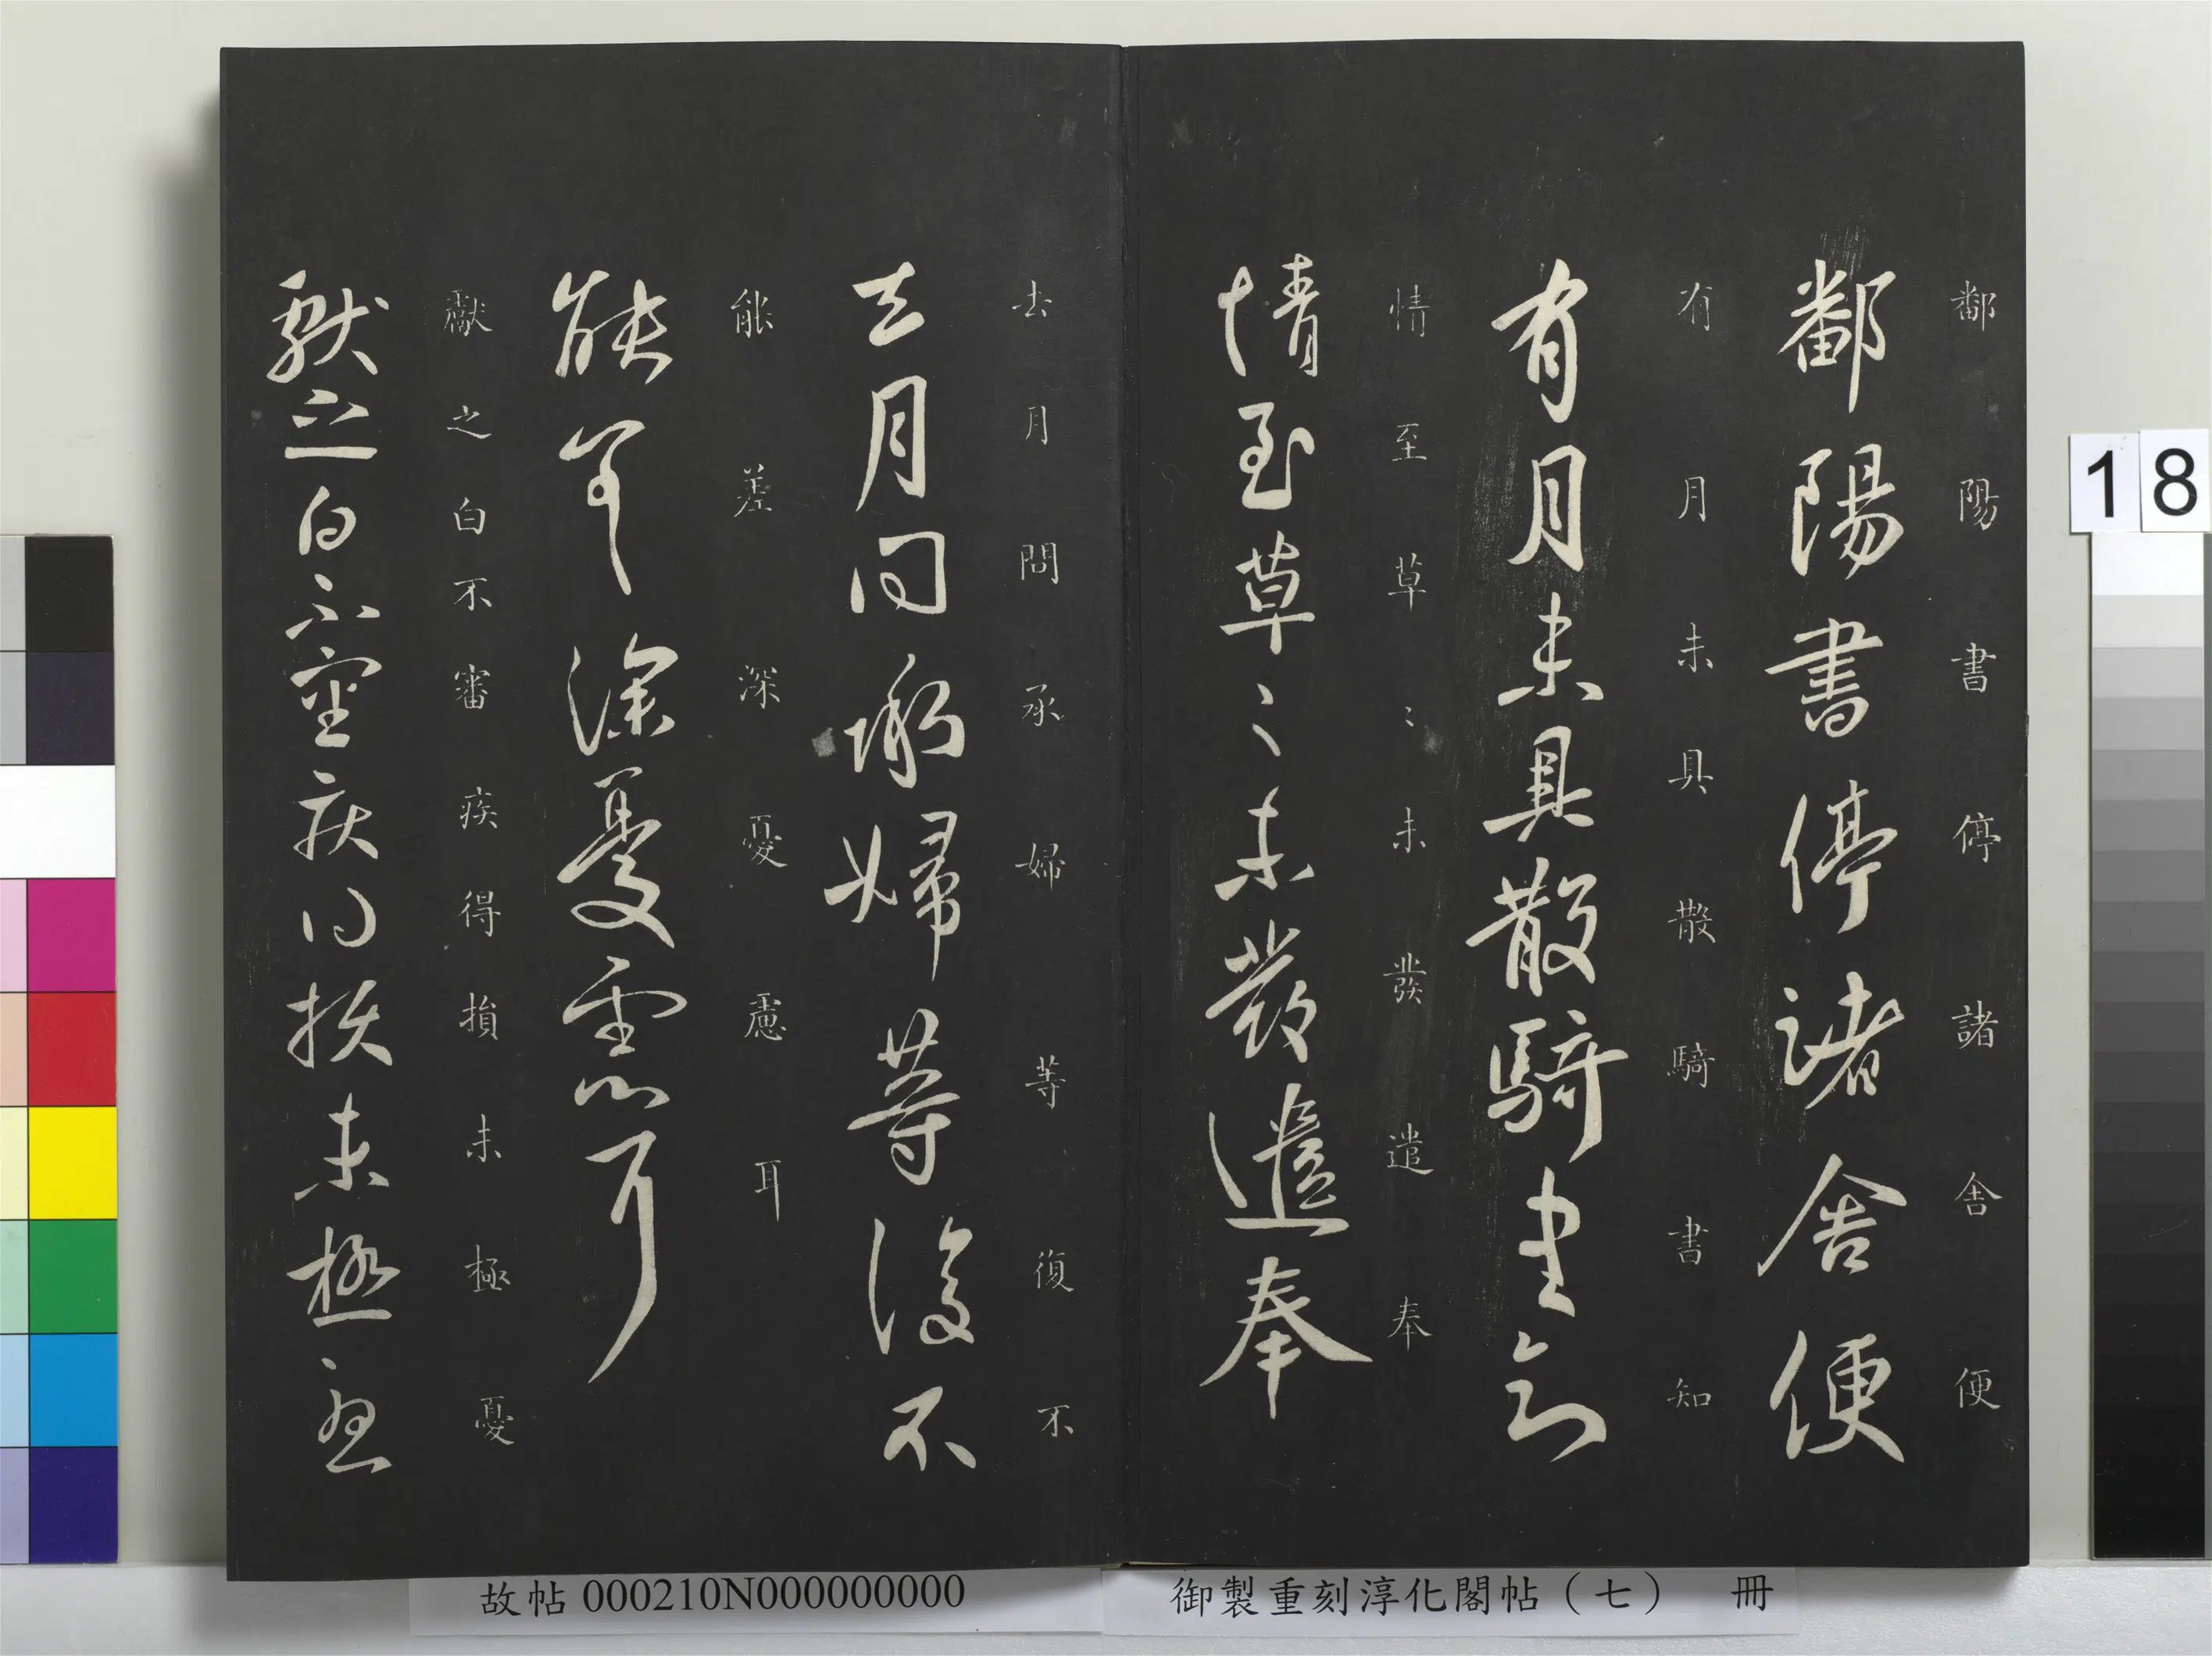 鄱陽書停諸舍便
鄱陽書停諸舍便
有月未具散騎書知
有月未具散騎書知
情至草〻未發遣奉
情至草〻未發遣奉
去月問承婦等復不
去月問承婦等復不
能差深憂慮耳
能差深憂慮耳
獻之白不審疾得損未極憂
獻之白不審疾得損未極憂
18
故帖000210N000000000
御製重刻淳化閣帖（七） 冊